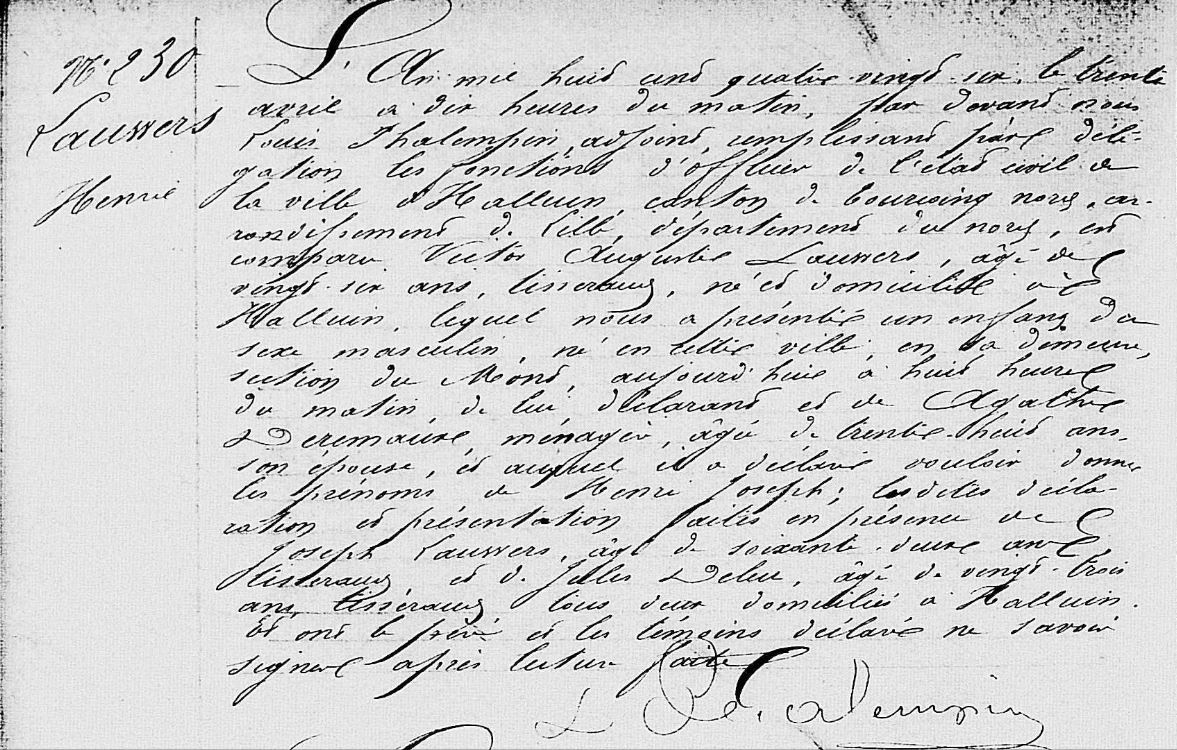 N° 230
Lauwers
Henri
L'An mil huit cent quatre-vingt-six, le trente
avril à dix heures du matin, par devant nous
Louis Thalempin, adjoint, remplissant par délé-
gation les fonctions d'officier de l'état civil de
la ville d'Halluin, canton de Tourcoing nord, ar-
rondissement de Lille, département du nord, est
comparu Victor Auguste Lauwers, âgé de
vingt-six ans, tisserand, né et domicilié à
Halluin, lequel nous a présenté un enfant du
sexe masculin, né en cette ville, en sa demeure,
section du Mont, aujourd'hui à huit heures
du matin, de lui déclarant et de Agathe
Deremaux, ménagère, âgée de trente-huit ans,
son épouse, et auquel il a déclaré vouloir donner
les prénoms de Henri Joseph; lesdites décla-
ration et présentation faites en présence de
Joseph Lauwers, âgé de soixante-deux ans,
tisserand et de Jules Deleu, âgé de vingt-trois
ans, tisserand tous deux domiciliés à Halluin.
Et ont le père et les témoins déclaré ne savoir
signer après lecture faite